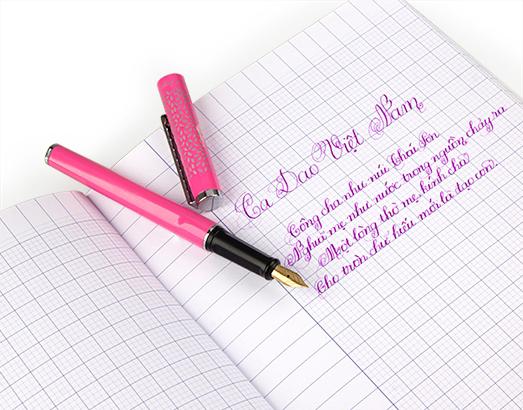 Ca Dao Việt Nam
Công cha như núi Thái Sơn
Nghĩa mẹ như nước trong nguồn chảy ra
Một lòng thờ mẹ kính cha
Cho tròn chữ hiếu mới là đạo con.